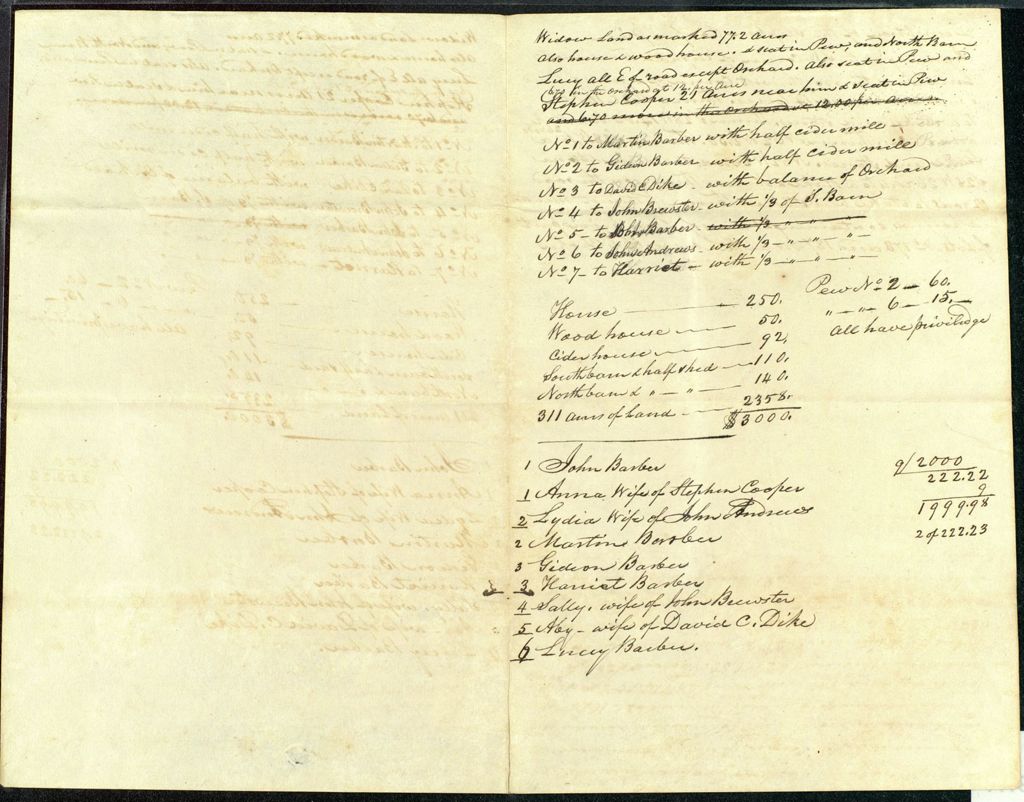 Widow Land as marked 77.2 acres
also house & wood house. & seat in Pew, and North Barn
Lucy all E of road except Orchard. Also seat in Pew and
6.70 in the Orchard at 12. per Acre
Stephen Cooper 21 Acres near him & seat in Pew
and 6.70 more in the Orchard at 12.00 per acre
No 1 to Martin Barber with half cider mill
No 2 to Gideon Barber - with half cider mill
No 3 to David C Dike - with balance of Orchard
No 4 to John Brewster - with 1/3 of S. Barn
No 5 - to John Barber - with 1/3 " " "
No 6 to John Andrews - with 1/3 - " - " - " - "
No 7 - to Harriet - with 1/3 - " - " - " - "
House — 250.
Wood house — 50.
Cider house — 92.
South barn & half shed — 110.
North barn & " - " — 140.
311 acres of Land — 2358.
$3000.
Pew No 2 — 60.
" - " - 6 — 15. —
All have priviledge
1 John Barber
1 Anna Wife of Stephen Cooper
2 Lydia Wife of John Andrews
2 Martin Barber
3 Gideon Barber
3 Harriet Barber
4 Sally. wife of John Brewster
5 Aby - wife of David C. Dike
6 Lucy Barber.
9/2000
222.22
9
1999.98
2 of 222.23